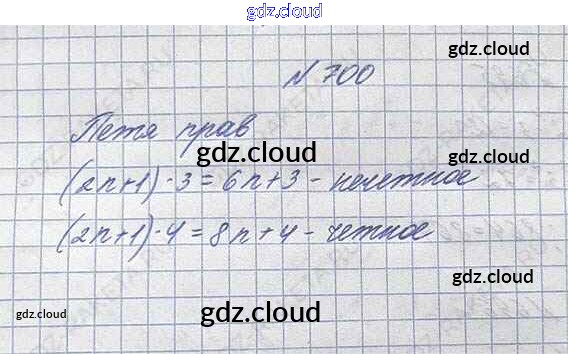 gdz.cloud
gdz.cloud
№ 700
Петя прав
gdz.cloud
gdz.cloud
(2n+1)·3=6n+3 - нечетное
(2n+1)·4=8n+4 - четное
gdz.cloud
gdz.cloud
gdz.cloud